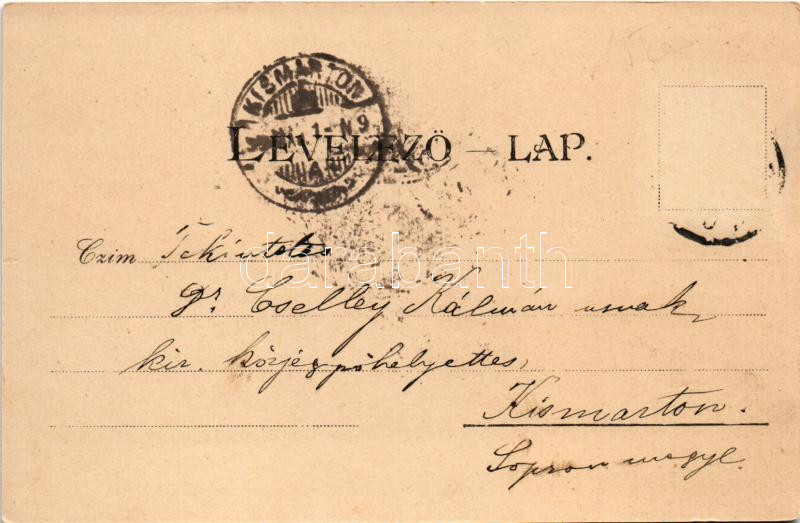 KISMARTON
LEVELEZŐ — LAP.
Czim Tekintetes
Dr. Cselley Kálmán urnak
kir. közjegyzőhelyettes,
Kismarton.
Sopron megye.
darabanth